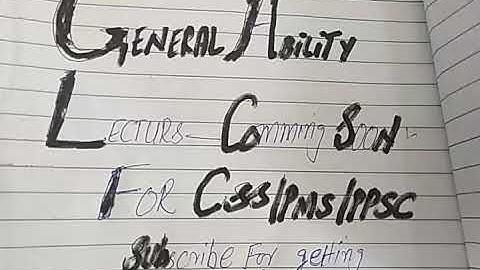 GENERAL ABILITY
LECTURS Comming SOON
FOR CSS/PMS/PPSC
Subscribe For getting